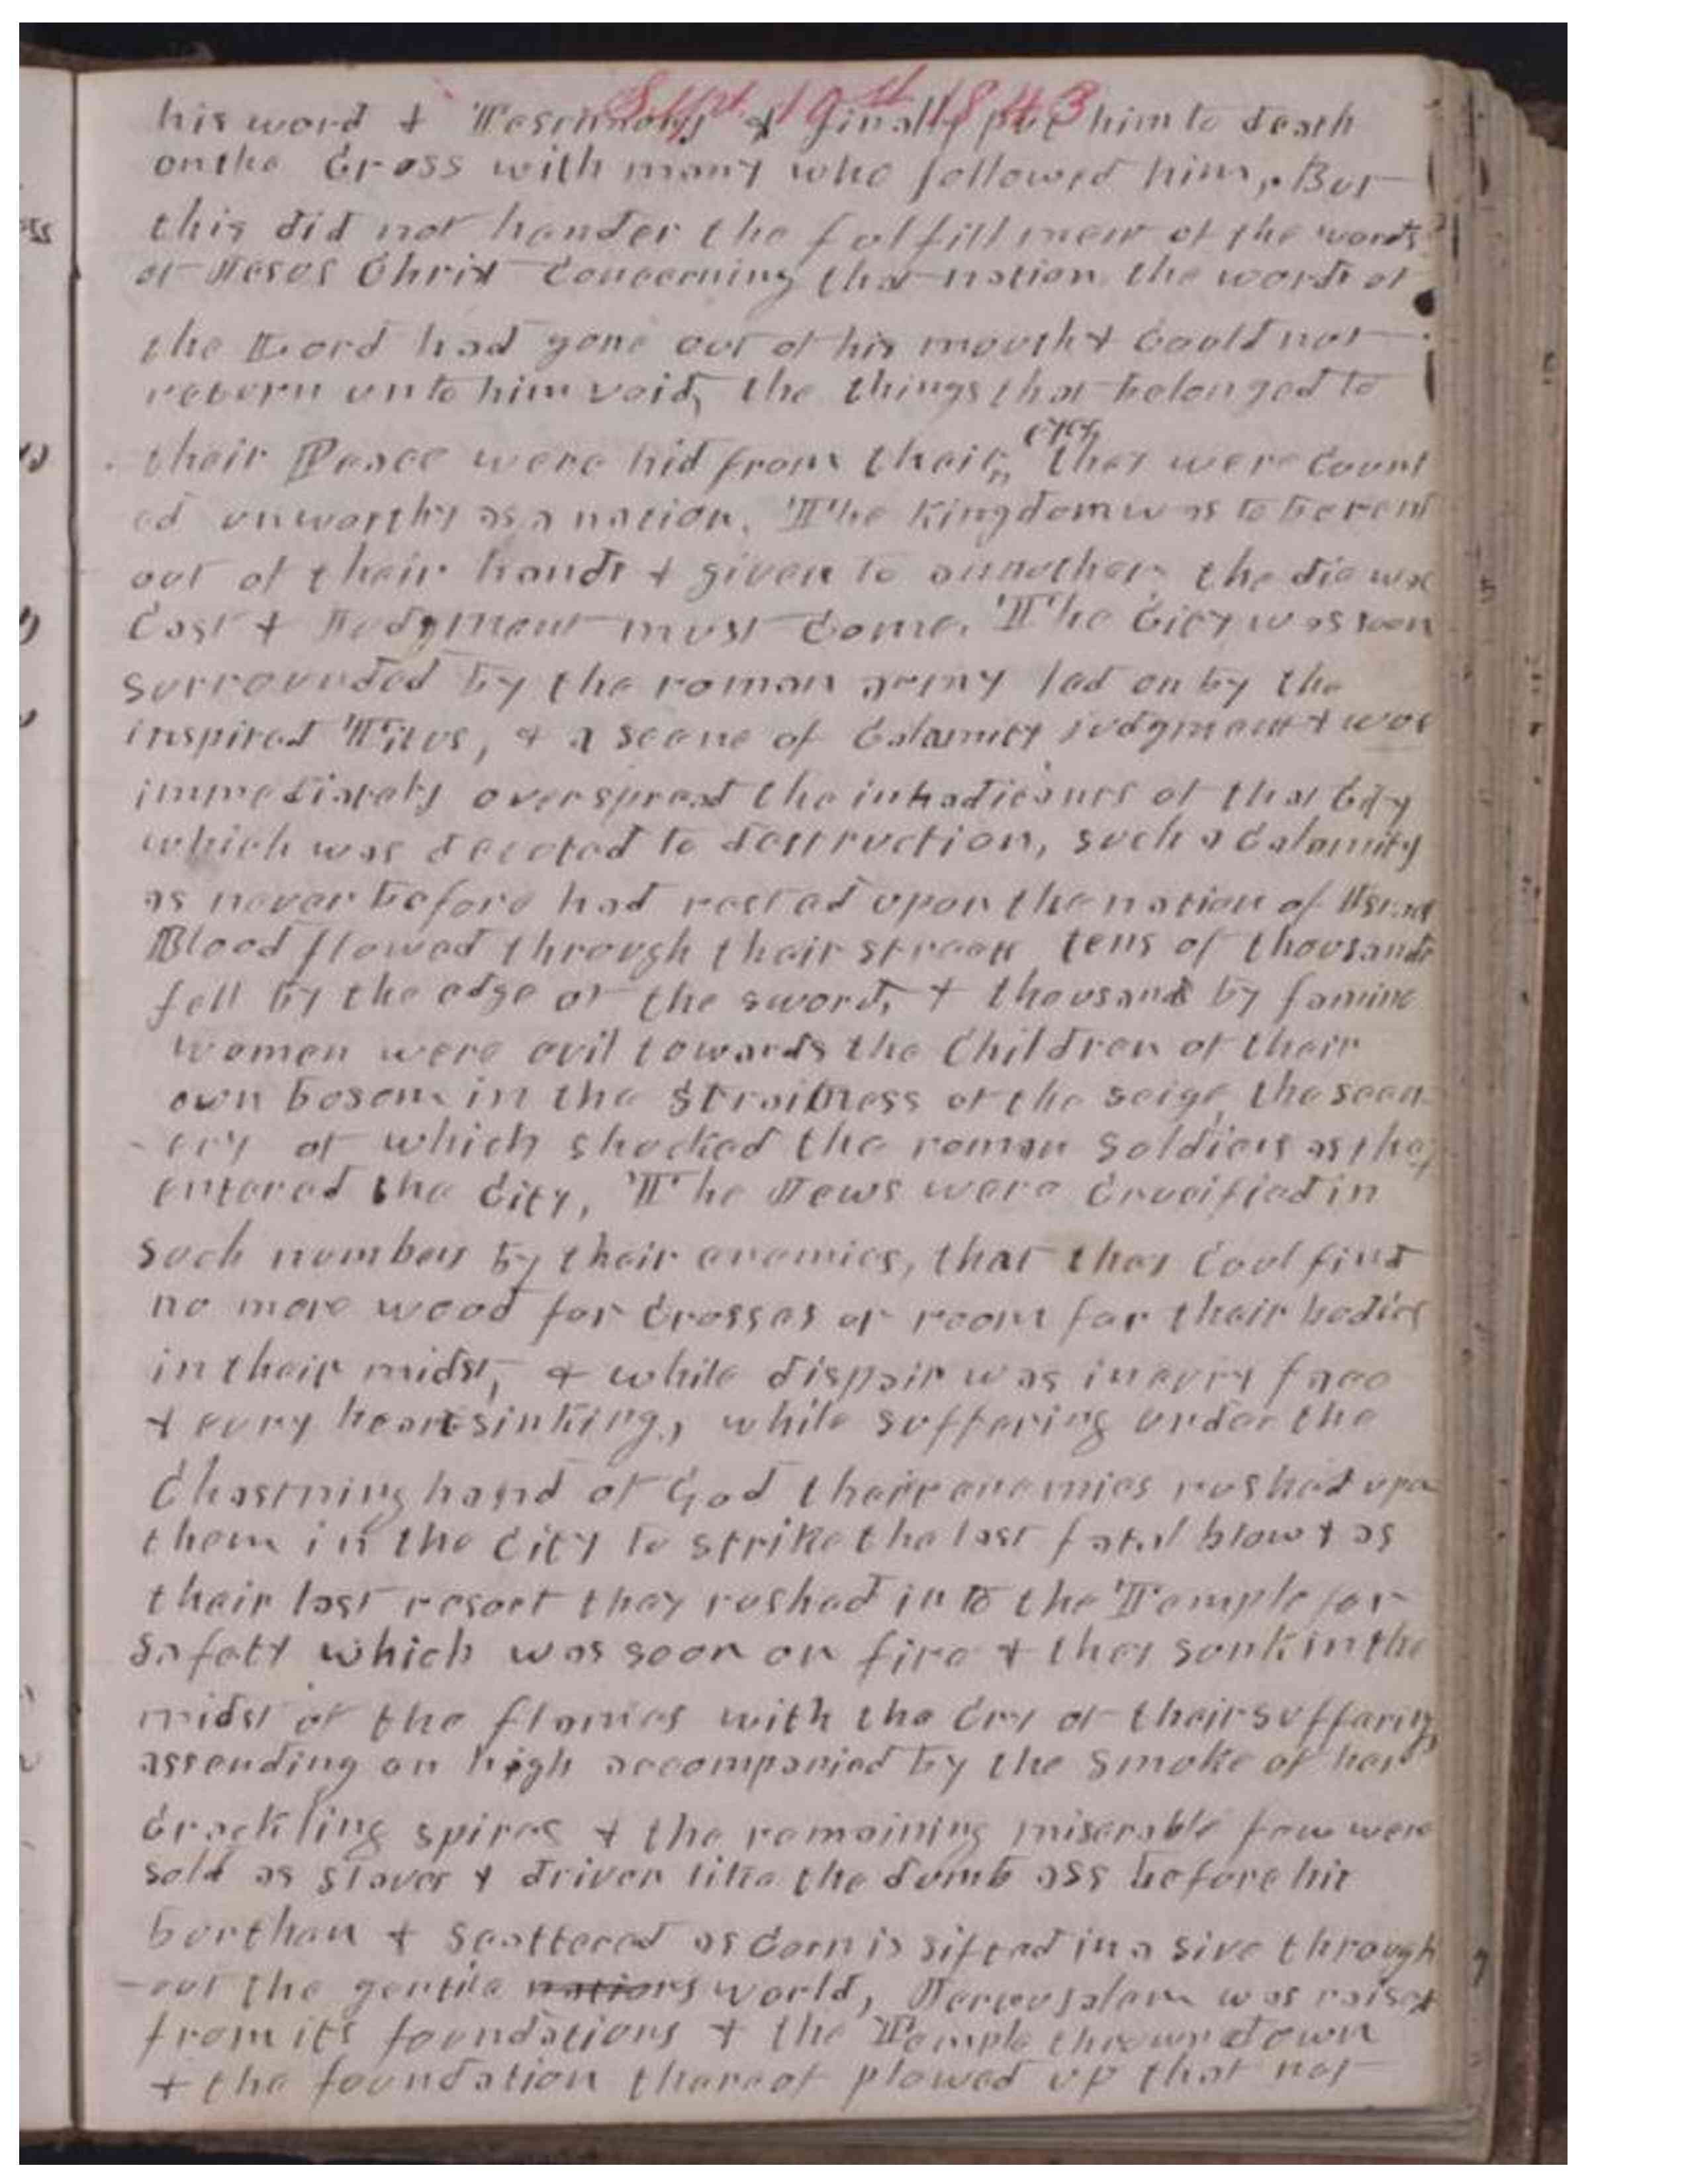 Sept. 10th 1843
his word & Testimony & finally put him to death
on the Cross with many who followed him, But
this did not hander the fulfillment of the words
of Jesus Christ Concerning that nation the words of
the Lord had gone out of his mouth & Could not
return unto him void, the things that belonged to
their Peace were hid from their eyes, they were Count
ed unworthy as a nation. The Kingdom was to be rent
out of their hands & given to annother, the die was
Cast & Judgment must Come. The City was soon
surrounded by the roman army led on by the
inspired Titus, & a scene of Calamity judgment & woe
immediately overspread the inhabitants of that City
which was devoted to destruction, such a Calamity
as never before had rested upon the nation of Israel
Blood flowed through their streets tens of thousands
fell by the edge of the sword, & thousands by famine
women were evil towards the Children of their
own bosom in the Straitness of the seige, the scen-
-ery of which shocked the roman Soldiers as they
entered the City, The Jews were Crucified in
such numbers by their enemies, that they Coul find
no more wood for Crosses or room for their bodies
in their midst, & while dispair was in evry face
& evry heart sinking, while suffering under the
Chastning hand of God their enemies rushed upon
them in the City to strike the last fatal blow & as
their last resort they rushed into the Temple for
Safety which was soon on fire & they sunk in the
midst of the flames with the Cry of their suffering
assending on high accompanied by the smoke of her
Crackling spires & the remaining miserable few were
sold as slaves & driven like the dumb ass before his
burthen & Scattered as Corn is sifted in a sive through
-out the gentile nations world, Jereusalem was raised
from its foundations & the Temple thrown down
& the foundation thereof plowed up that not